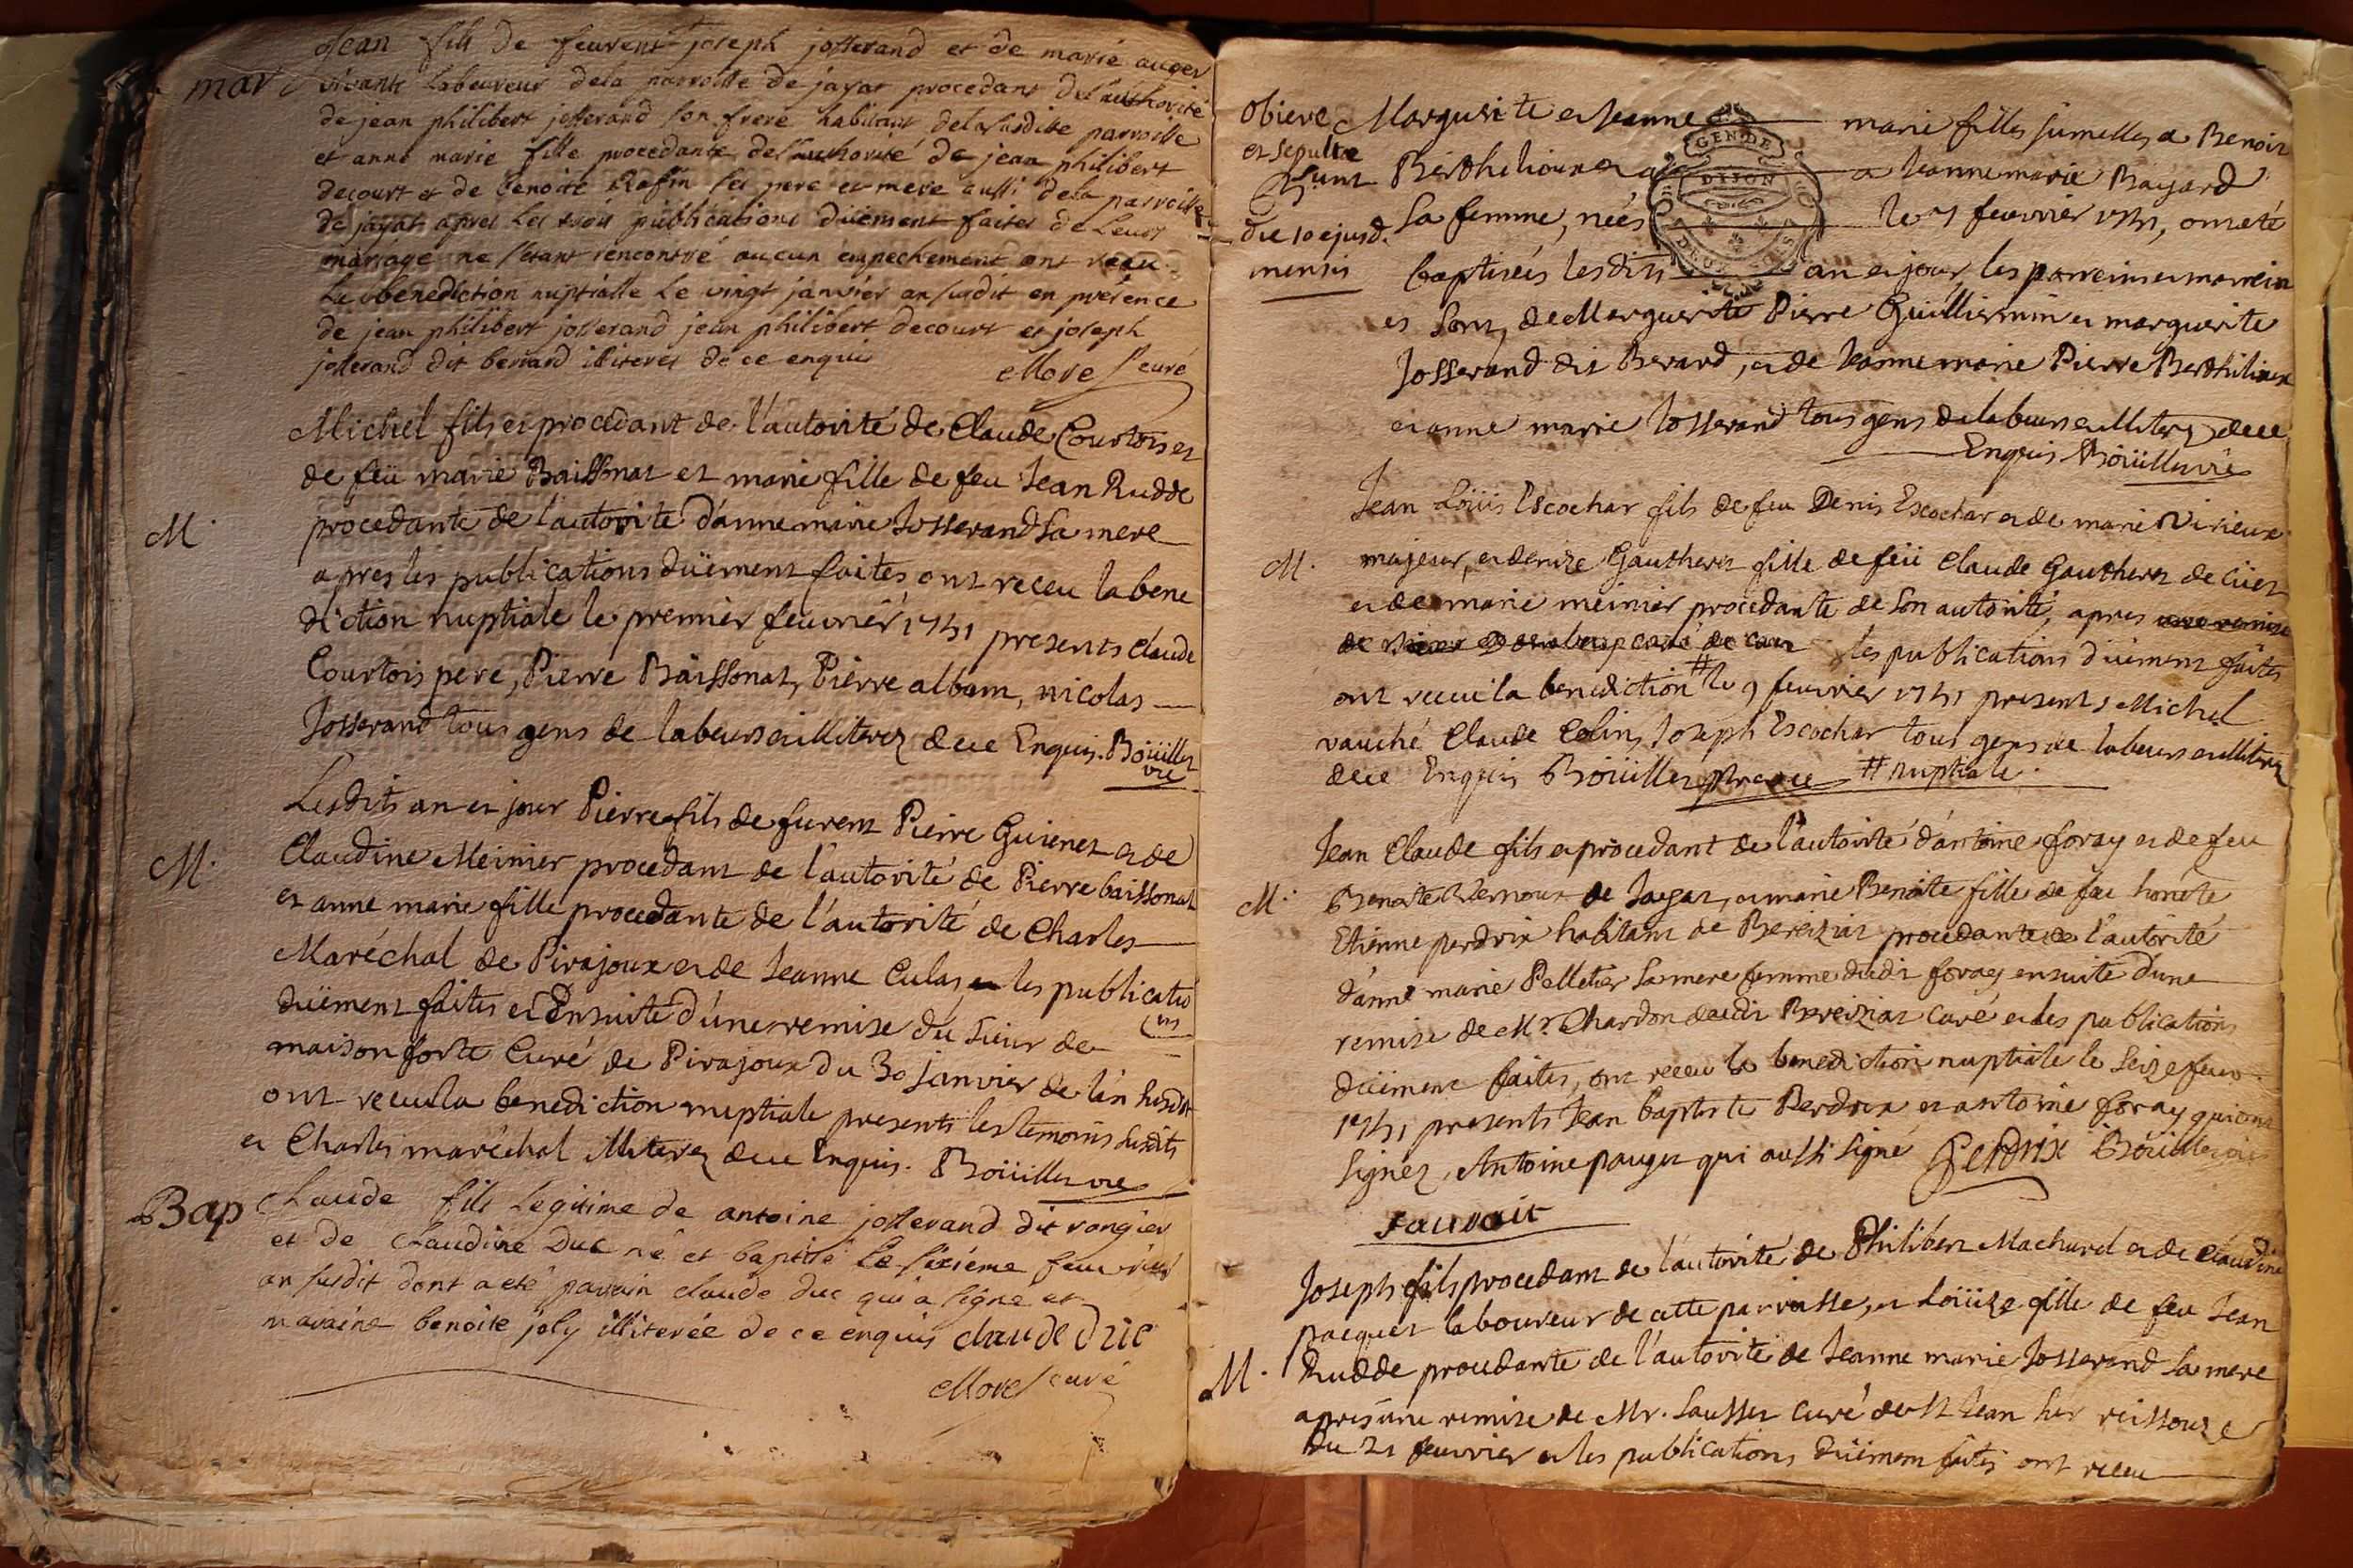 Jean fils de feuvent joseph josserand et de marie auger
mar
vivante Laboureur dela parroisse de jayat procedant del'authorité
de jean philibert josserand son frere habitant dela susdite parroisse
et anne marie fille procedante del'authorité de jean philibert
decourt et de benoite Rafin ses pere et mere aussi dela parroisse
de jayat apres les trois publications düement faites de Leurs
mariage ne s'etant rencontré aucun empechement ont reçu
La benediction nuptialle Le vingt janvier an susdit en presence
de jean philibert josserand jean philibert decourt et joseph
josserand dit berrard illiteres de ce enquis
Morel curé
Michel fils et procedant de l'autorité de Claude Courtois et
de feu marie Baissonat et marie fille de feu Jean Rudde
M.
procedante de l'autorité d'anne marie Josserand sa mere
apres les publications düement faites ont receu la bene
diction nuptiale le premier feuvrier 1751 presents claude
Courtois pere, Pierre Baissonat, Pierre albam, nicolas
Josserand tous gens de labeurs et illiterez de ce Enquis. Boüillet
vic
Lesdits an et jour Pierre fils de furent Pierre Guienet et de
M.
Claudine Meinier procedant de l'autorité de Pierre baissonat
et anne marie fille procedante de l'autorité de Charles
Maréchal de Pirajoux et de Jeanne Culas les publicatio
ns
düement faites et Ensuite d'une remise du Sieur de
maisonforte Curé de Pirajoux du 30 janvier de l'an susdit
ont receu la benediction nuptiale presents les temoins susdits
et Charles maréchal illiterez de ce Enquis. Boüillet vic
Bap
Claude fils Legitime de antoine josserand dit rongier
et de claudine Duc né et baptisé Le sixiéme feuvrier
an susdit dont a eté parain claude duc qui a signé et
maraine benoite joly illiterée de ce enquis claude duc
Morel curé
obiere
et sepultæ
sunt
die 10 ejusd.
mensis
Margueritte et Jeanne marie filles jumelles a Benoit
GEN DE
DIJON
Berthelioux et a Jeanne marie Bayard
sa femme, nées le 7 feuvrier 1751, ont eté
baptisées lesdits an et jour, les parreins et marrein
es sont, de Marguerite Pierre Guilliermin et marguerite
Josserand dit Berard, et de Jeanne marie Pierre Berthilioux
et anne marie Josserand tous gens de labeurs et illiterez de ce
Enquis Boüillet vic
Jean Loüis Escochar fils de feu Denis Escochar et de marie Virieux
M.
majeur, et denise Gautheret fille de feu Claude Gautheret de Cuet
et de marie meinier procedante de son autorité, apres
les publications düement faites
ont receu la benediction # le 9 feuvrier 1751 presents Michel
vauché Claude Colin, Joseph Escochar tous gens de labeurs et illiterez
de ce Enquis Boüillet # nuptiale.
Jean Claude fils et procedant de l'autorité d'antoine foray et de feu
M.
Benoite de Jayat, et marie Benoite fille de feu honete
Etienne perdrix habitant de Bereiziat procedante de l'autorité
d'anne marie Pelletier sa mere femme dudit foray ensuite d'une
remise de Mr. Chardon dudit Bereiziat curé et les publications
düement faites, ont receu la benediction nuptiale le seize feuvr.
1751 presents Jean baptiste Perdrix et antoine foray qui ont
signez, Antoine pauget qui aussi signé Perdrix Boüillet vic
Joseph fils procedant de l'autorité de Philibert Machurel et de Claudine
pacquet laboureur de cette parroisse, et Loüize fille de feu Jean
M.
Rudde procedante de l'autorité de Jeanne marie Josserand sa mere
apres une remise de Mr. Sausset curé de St Jean sur reissouze
du 21 feuvrier et les publications düement faites ont receu